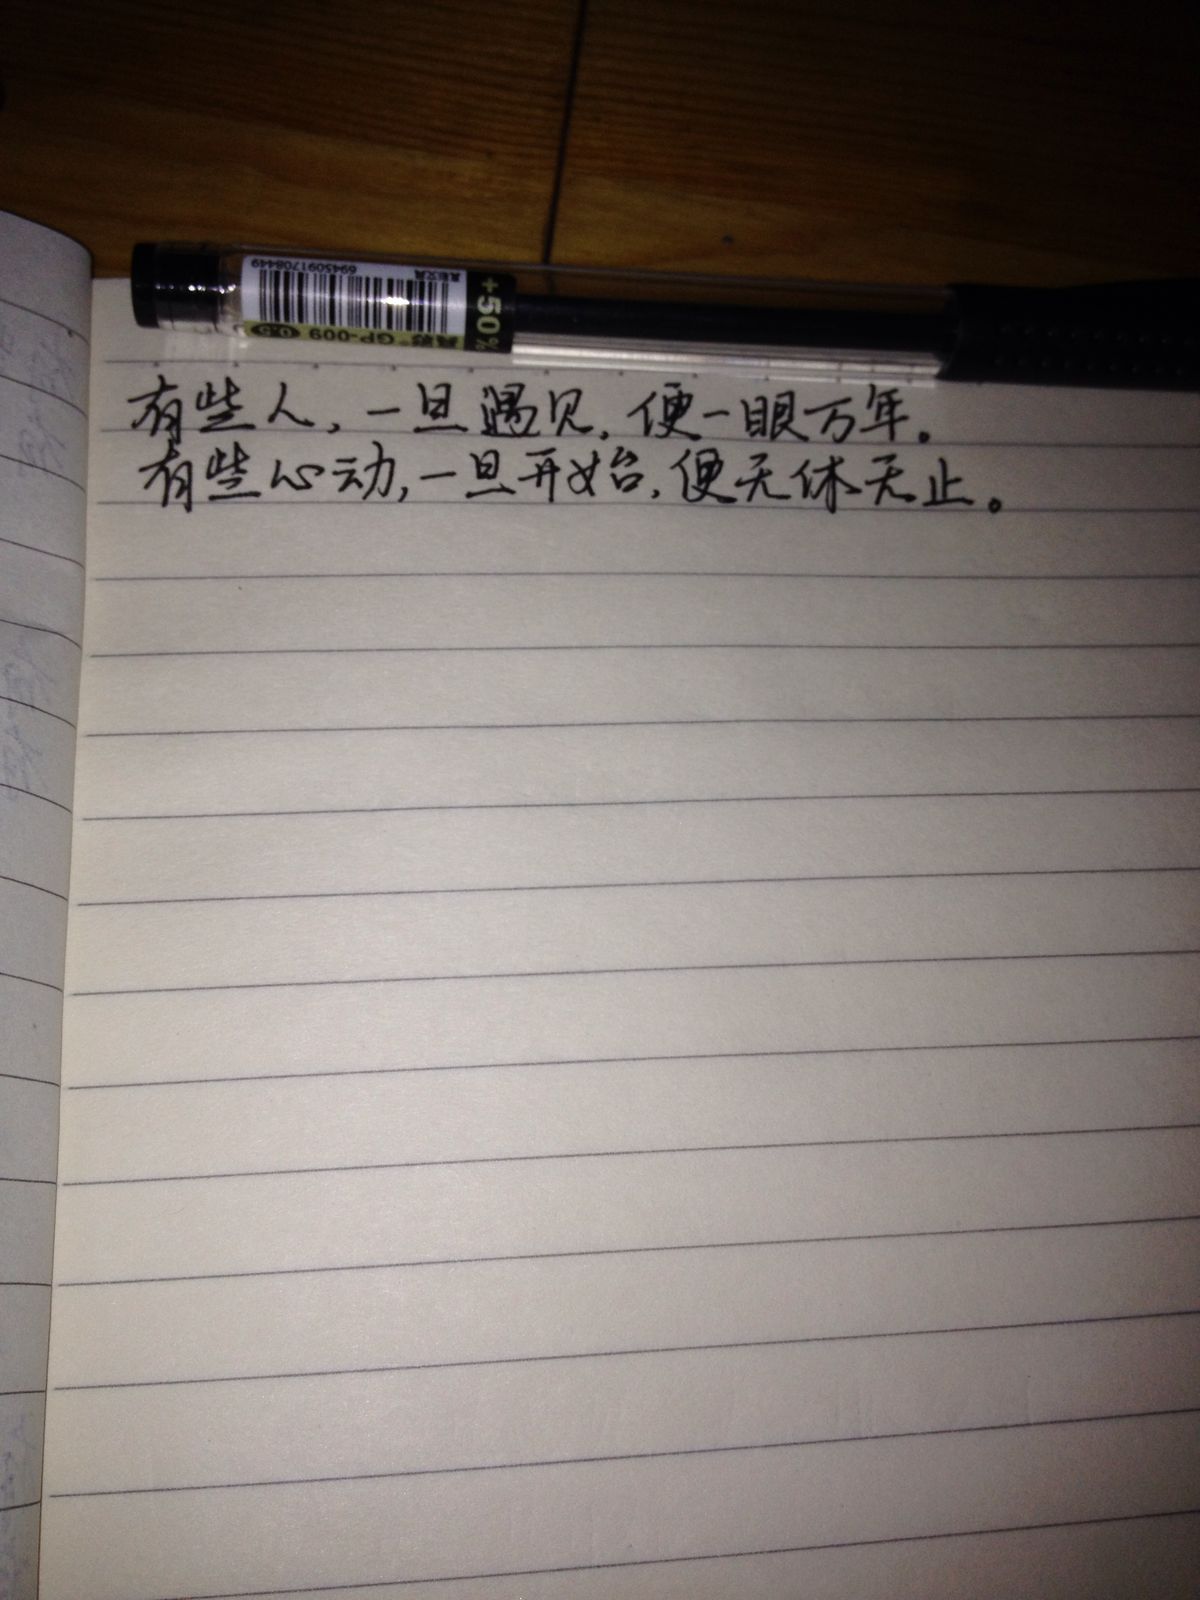 +50%
真彩文具
6945091708449
真彩® GP-009 0.5
有些人，一旦遇见，便一眼万年。
有些心动，一旦开始，便无休无止。